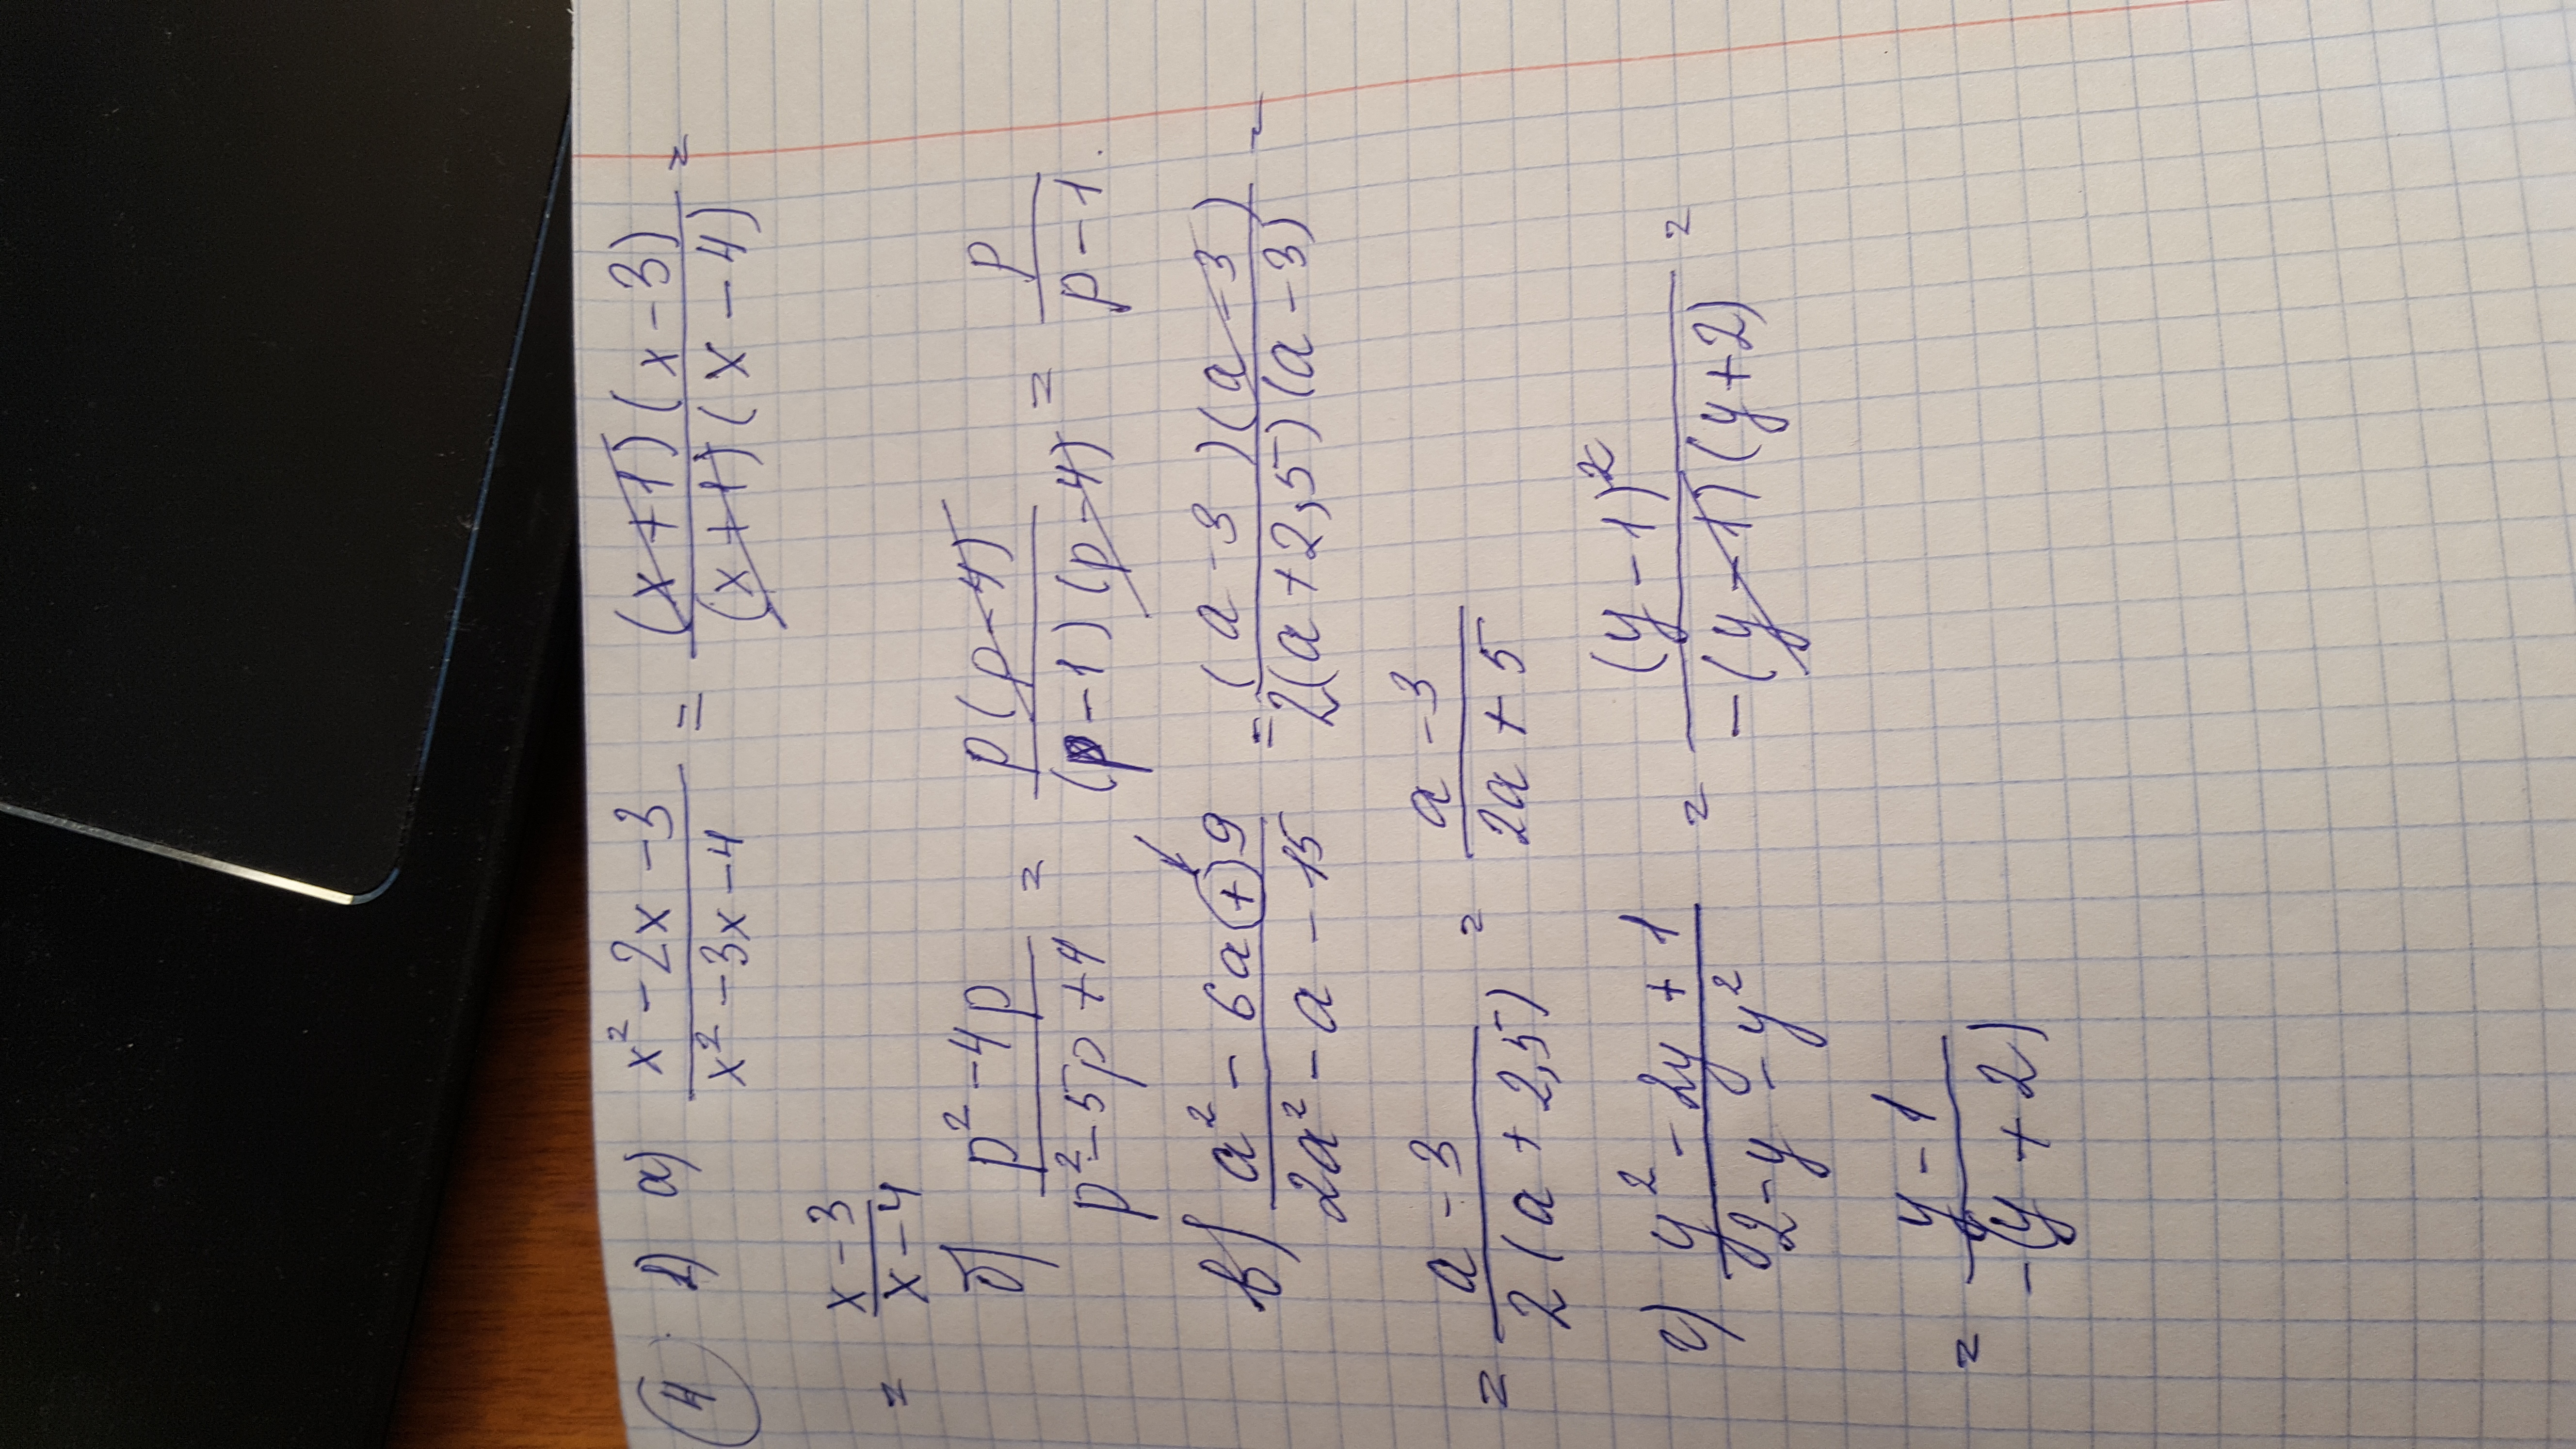 4. 1) а) (x² - 2x - 3)/(x² - 3x - 4) = ((x+1)(x-3))/((x+1)(x-4)) =
= (x-3)/(x-4)
б) (p² - 4p)/(p² - 5p + 4) = (p(p-4))/((p-1)(p-4)) = p/(p-1).
в) (a² - 6a + 9)/(2a² - a - 15) = ((a-3)(a-3))/(2(a+2,5)(a-3)) =
= (a-3)/(2(a+2,5)) = (a-3)/(2a+5)
г) (y² - 2y + 1)/(2 - y - y²) = (y-1)²/(-(y-1)(y+2)) =
= (y-1)/(-(y+2))